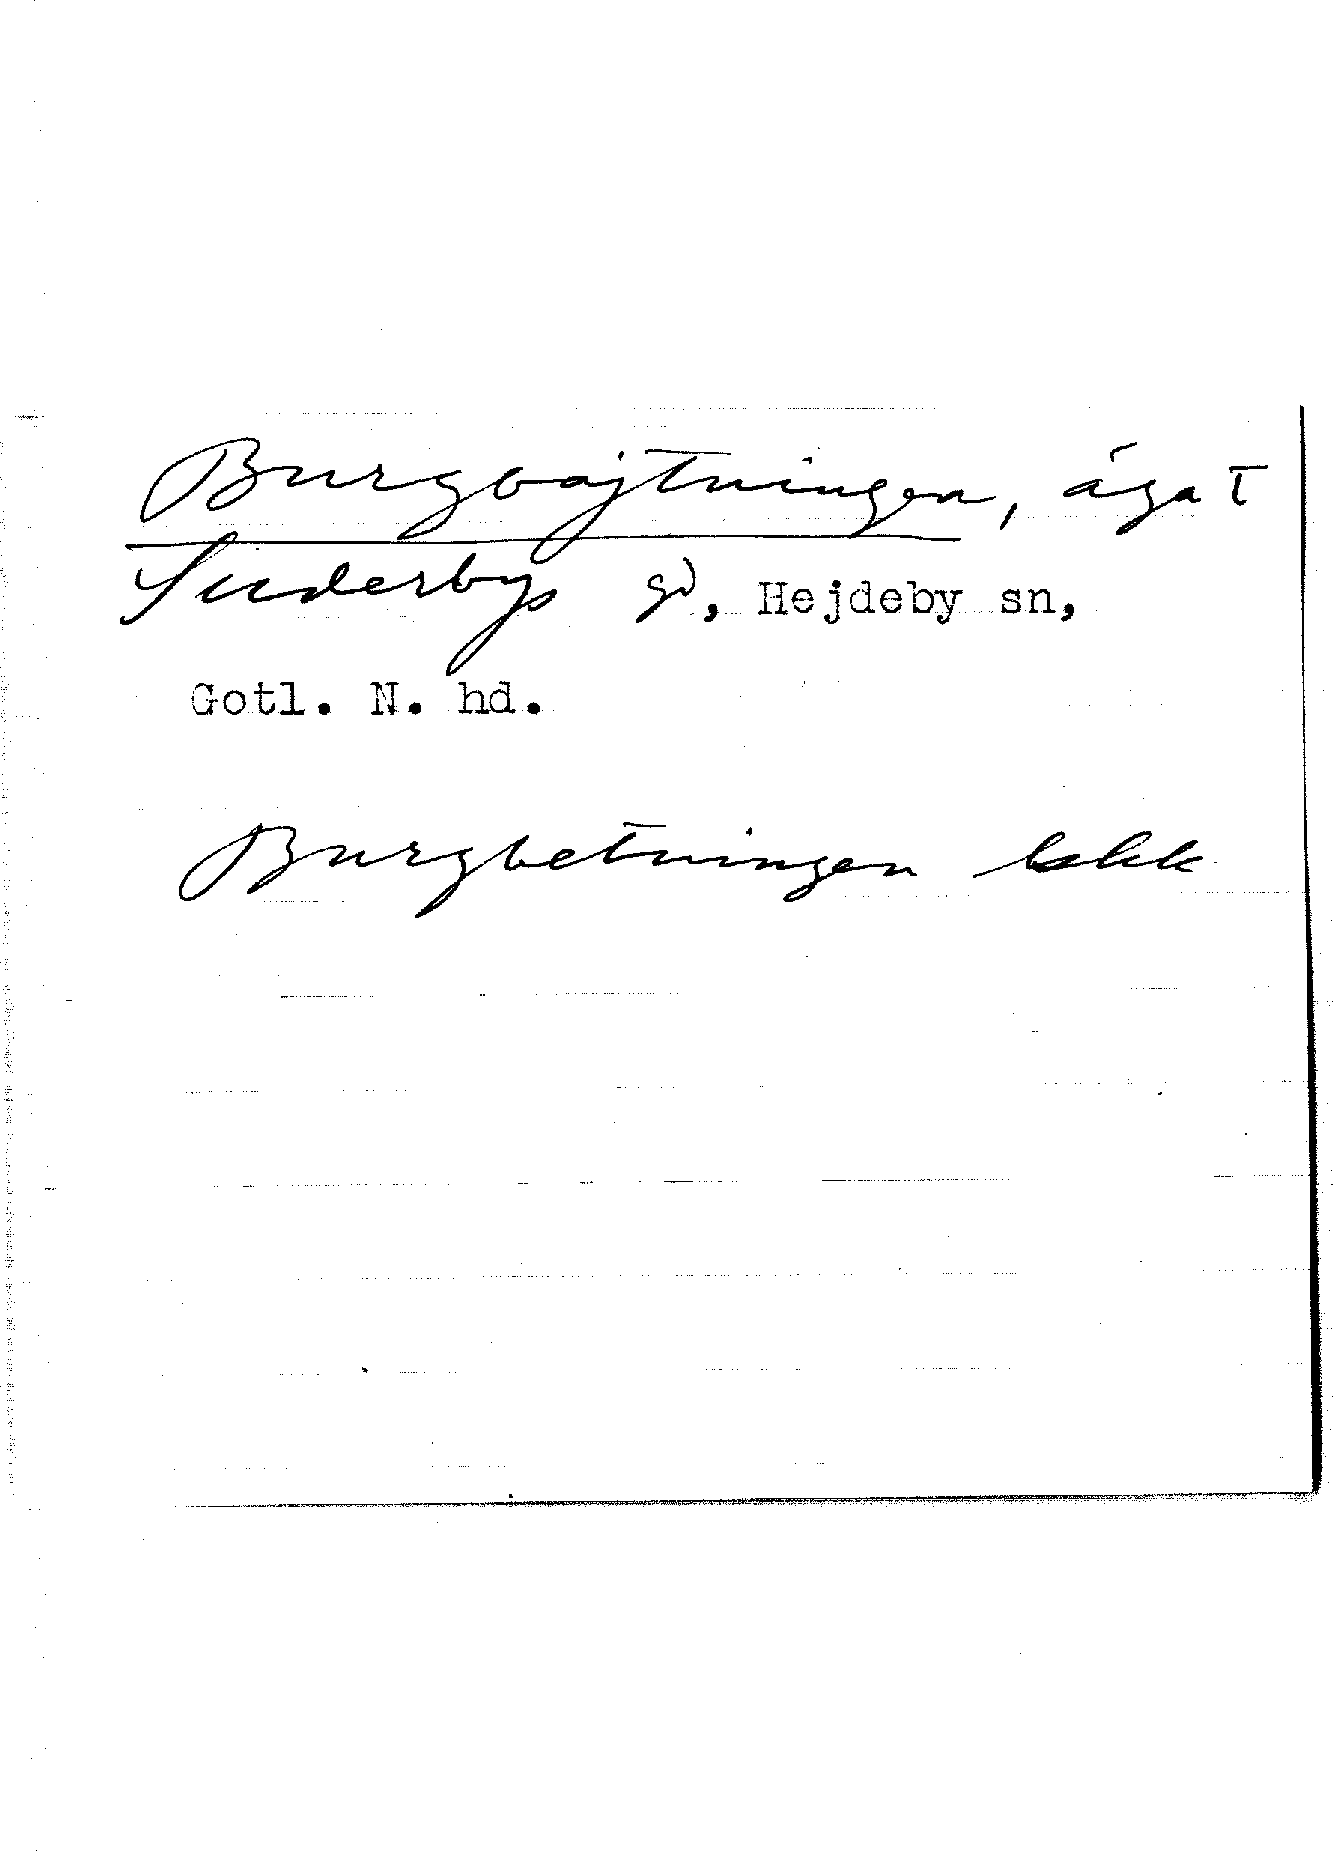 Burgbajtningen, äga t
Suderbys gd, Hejdeby sn,
Gotl. N. hd.
Burgbetningen